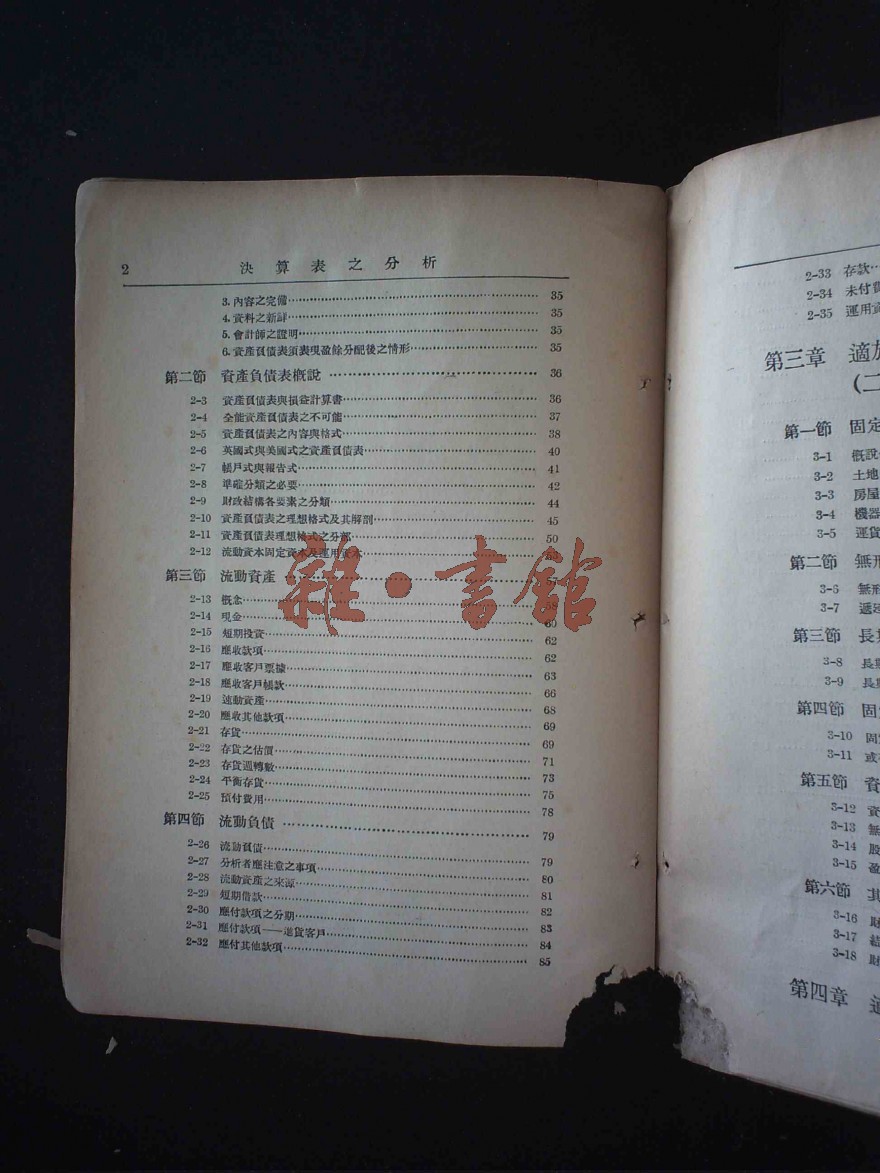 2 決算表之分析
3. 內容之完備 35
4. 資料之新鮮 35
5. 會計師之證明 35
6. 資產負債表須表現盈餘分配後之情形 35
第二節 資產負債表概說 36
2-3 資產負債表與損益計算書 36
2-4 全能資產負債表之不可能 37
2-5 資產負債表之內容與格式 38
2-6 英國式與美國式之資產負債表 40
2-7 帳戶式與報告式 41
2-8 準確分類之必要 42
2-9 財政結構各要素之分類 44
2-10 資產負債表之理想格式及其解剖 45
2-11 資產負債表理想格式之分部 50
2-12 流動資本固定資本及運用資本
第三節 流動資產 57
2-13 概念 58
2-14 現金 60
2-15 短期投資 62
2-16 應收款項 62
2-17 應收客戶票據 63
2-18 應收客戶帳款 66
2-19 速動資產 68
2-20 應收其他款項 69
2-21 存貨 69
2-22 存貨之估價 71
2-23 存貨週轉數 73
2-24 平衡存貨 75
2-25 預付費用 78
第四節 流動負債 79
2-26 流動負債 79
2-27 分析者應注意之事項 80
2-28 流動資產之來源 81
2-29 短期借款 82
2-30 應付款項之分期 83
2-31 應付款項——進貨客戶 84
2-32 應付其他款項 85
雜·書館
2-33 存款
2-34 未付費
2-35 運用資
第三章 適
(二
第一節 固定
3-1 概說
3-2 土地
3-3 房屋
3-4 機器
3-5 運貨
第二節 無形
3-6 無形
3-7 遞延
第三節 長期
3-8 長期
3-9 長期
第四節 固定
3-10 固定
3-11 或有
第五節 資
3-12 資
3-13 無
3-14 股
3-15 盈
第六節 其
3-16 財
3-17 結
3-18 財
第四章 適